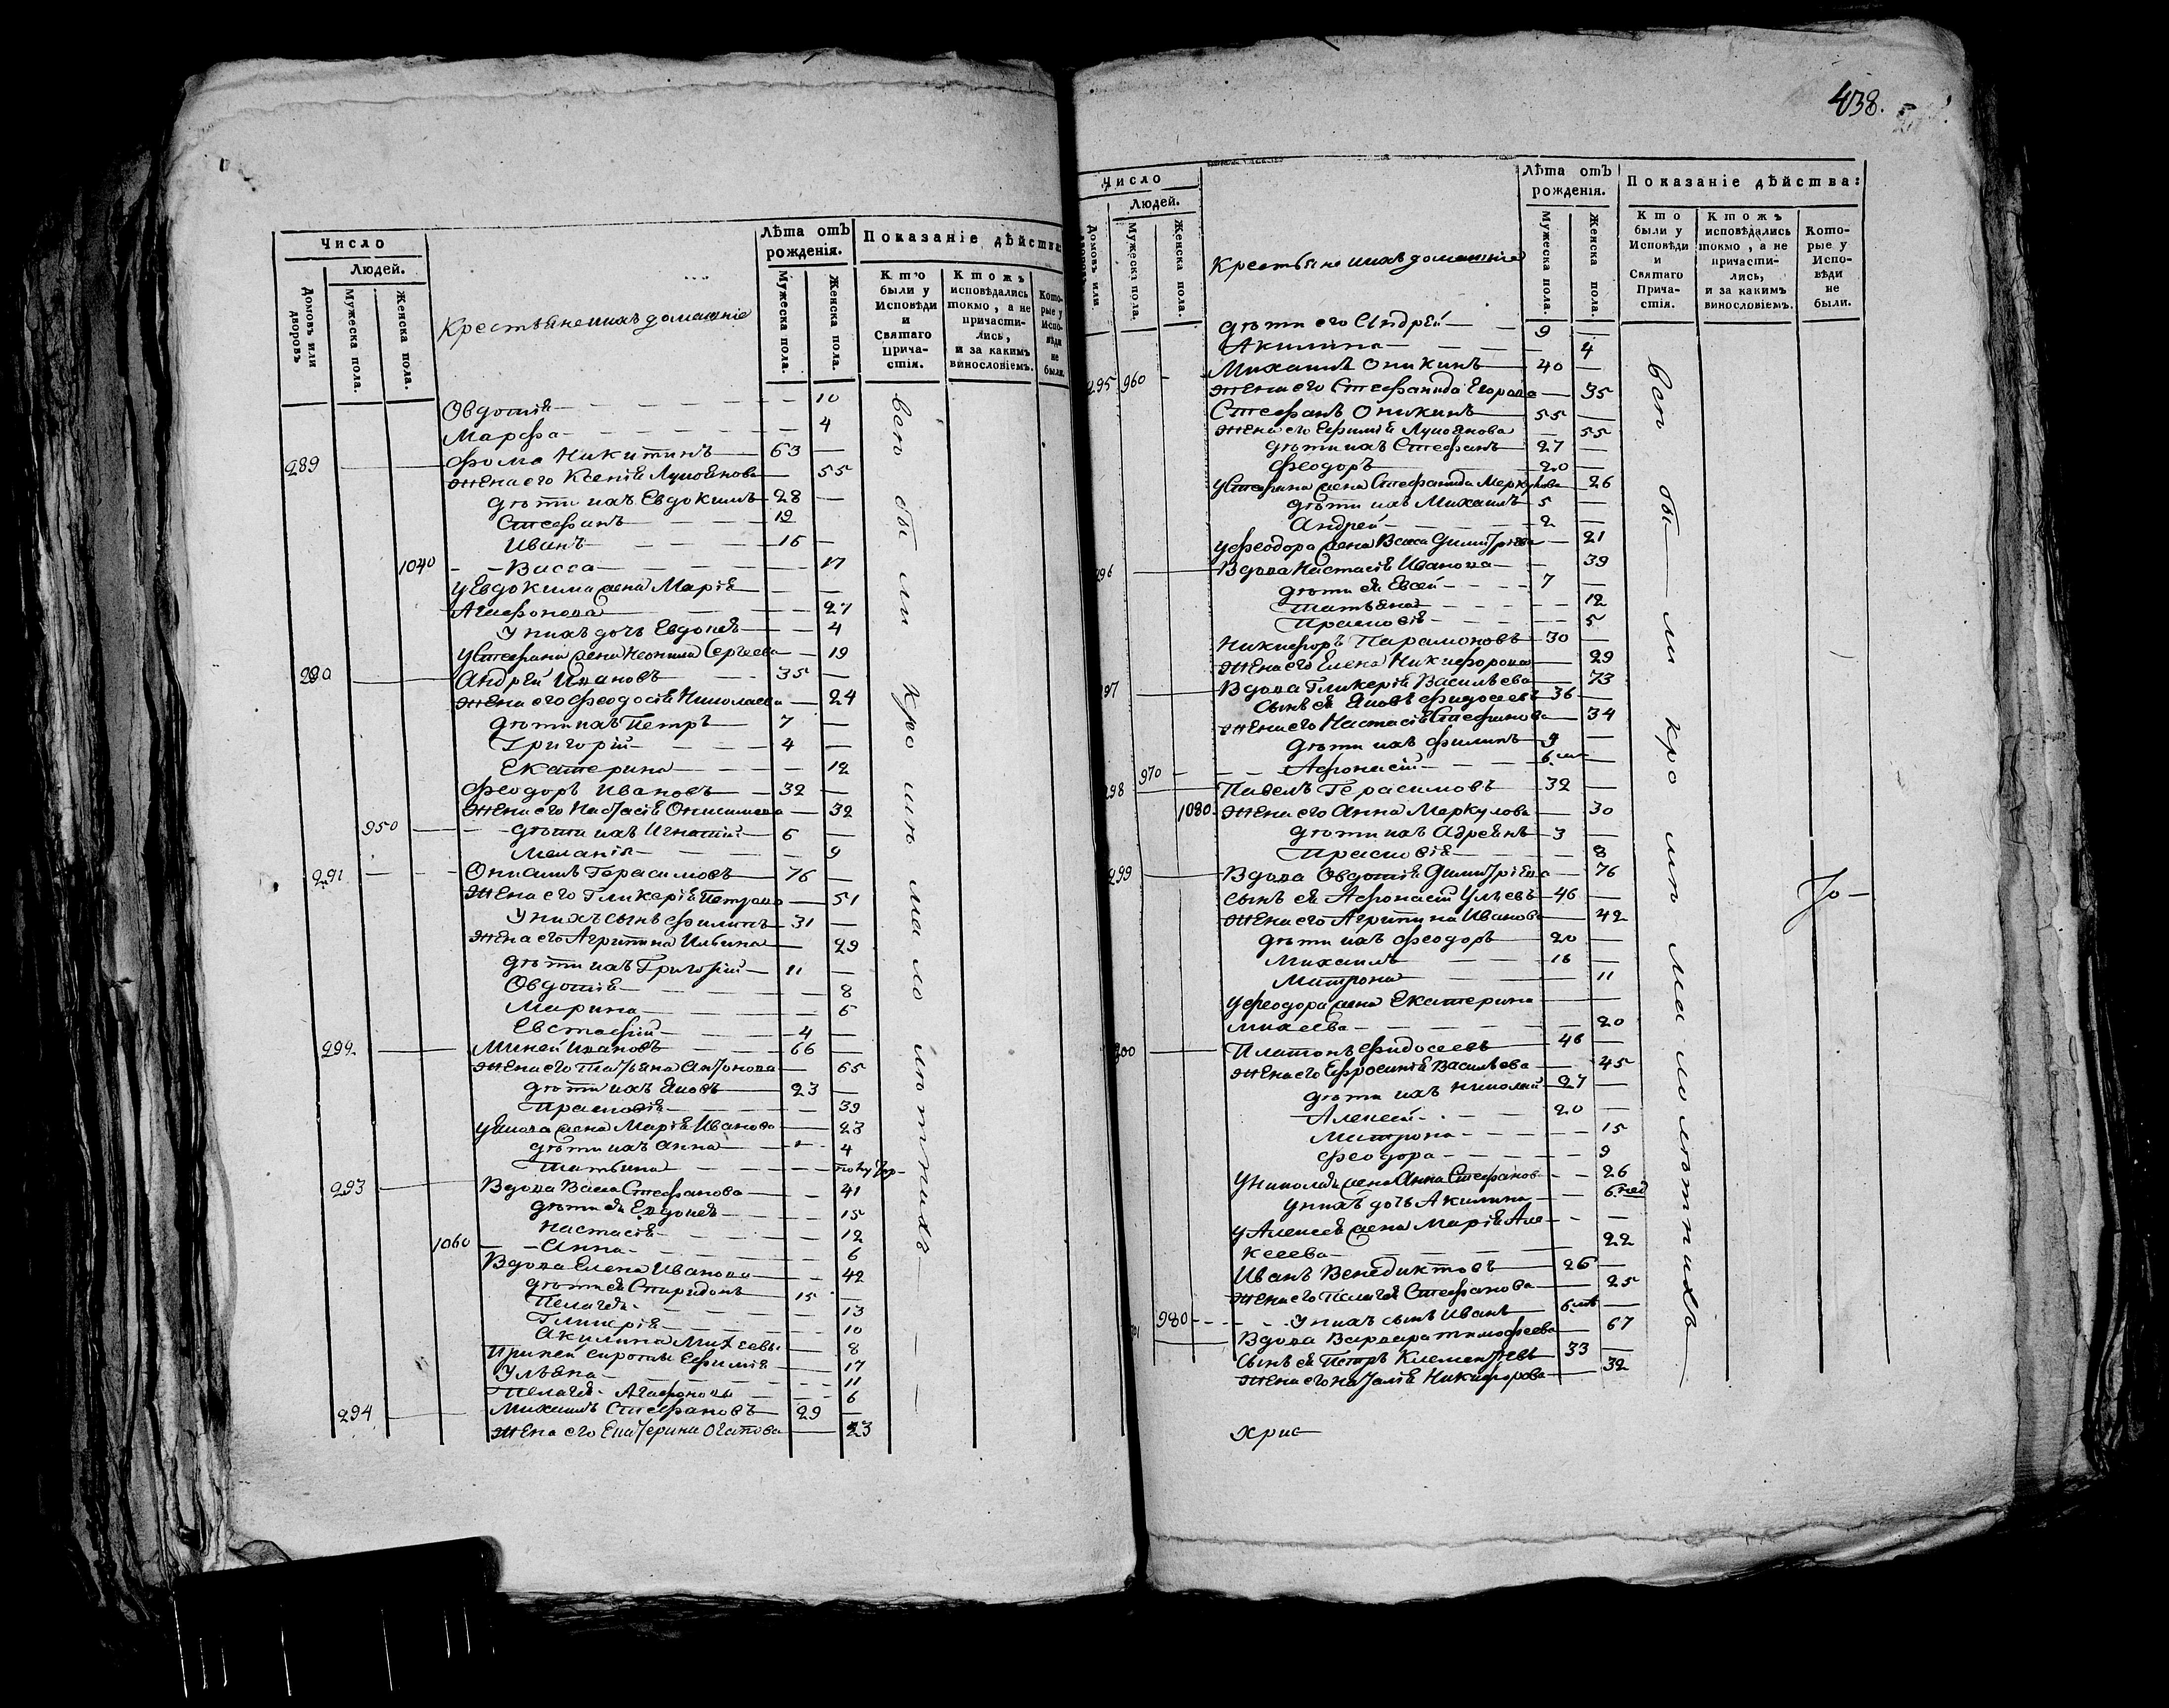 438.
Число
Людей.
Домовъ или дворовъ
Мужеска пола.
Женска пола.
Крестьяне и ихъ домашніе
Лѣта отъ рожденія.
Мужеска пола.
Женска пола.
Показаніе дѣйства:
Кто были у Исповѣди и Святаго Прича-стія.
Ктожъ исповѣдались токмо, а не причасти-лись, и за какимъ винословіемъ.
Кото-рые у Испо-вѣди не были.
Овдотія 10
Марфа 4
289 Фома Никитинъ 63
жена его Ксенія Лукоянова 55
дѣти ихъ Евдокимъ 28
Стефанъ 19
Иванъ 16
1040 Васса 17
у Евдокима жена Марія
Агафонова 27
у нихъ дочь Евдокія 4
у Стефана жена Неонила Сергеева 19
290 Андрей Ивановъ 35
жена его Феодосія Николаева 24
дѣти ихъ Петръ 7
Григорій 4
Екатерина 12
Феодоръ Ивановъ 32
жена его Настасія Онисимова 32
950 дѣти ихъ Игнатій 6
Меланія 9
291 Онисимъ Герасимовъ 76
жена его Гликерія Петрова 51
у нихъ сынъ Филипъ 31
жена его Агрипина Ильина 29
дѣти ихъ Григорій 11
Овдотія 8
Марина 6
Евстафій 4
292 Миней Ивановъ 66
жена его Татьяна Антонова 65
дѣти ихъ Яковъ 23
Прасковія 39
у Якова жена Марія Иванова 23
дѣти ихъ Анна 4
Татьяна
293 Вдова Васса Стефанова 41
дѣти ея Евдокія 15
Настасія 12
1060 Анна 6
Вдова Елена Иванова 42
дѣти ея Спиридонъ 15
Пелагея 13
Гликерія 10
Акулина Михеевы 8
При ней сироты Ефимія 17
Ульяна 11
Пелагея Агафоновы 6
294 Михаилъ Стефановъ 29
жена его Екатерина 23
всѣ были кромѣ малолѣтнихъ
Число
Людей.
Домовъ или дворовъ
Мужеска пола.
Женска пола.
Крестьяне и ихъ домашніе
Лѣта отъ рожденія.
Мужеска пола.
Женска пола.
Показаніе дѣйства:
Кто были у Исповѣди и Святаго Прича-стія.
Ктожъ исповѣдались токмо, а не причасти-лись, и за какимъ винословіемъ.
Кото-рые у Испо-вѣди не были.
дѣти его Андрей 9
Акилина 4
295 960 Михаилъ Оникинъ 40
жена его Стефанида Егорова 35
Стефанъ Оникинъ 55
жена его Ефимія Лукоянова 55
дѣти ихъ Стефанъ 27
Феодоръ 20
у Стефана жена Стефанида Меркулова 26
дѣти ихъ Михаилъ 5
Андрей 2
у Феодора жена Васса Димитріева 21
296 Вдова Настасія Иванова 39
дѣти ея Евсей 7
Татьяна 12
Прасковія 5
Никифоръ Парамоновъ 30
жена его Елена Никифорова 29
297 Вдова Гликерія Васильева 73
сынъ ея Яковъ Фидосеевъ 36
жена его Настасія Стефанова 34
дѣти ихъ Филипъ 9
970 Афонасій
298 Павелъ Герасимовъ 32
1080 жена его Анна Меркулова 30
дѣти ихъ Адреянъ 3
Прасковія 8
299 Вдова Овдотія Димитріева 76
сынъ ея Афонасій Ульевъ 46
жена его Агрипина Иванова 42
дѣти ихъ Феодоръ 20
Михаилъ 16
Матрона 11
у Феодора жена Екатерина
Михеева 20
300 Платонъ Фидосеевъ 46
жена его Ефросинія Васильева 45
дѣти ихъ Николай 27
Алексей 20
Матрона 15
Феодора 9
у Николая жена Анна Стефанов 26
у нихъ дочь Акилина 6 нед
у Алексея жена Марія Але-
ксеева 22
Иванъ Венедиктовъ 26
жена его Пелагея Стефанова 25
980 у нихъ сынъ Иванъ
Вдова Варвара Тимофеева 67
сынъ ея Петръ Клементьевъ 33
жена его Наталія Никифорова 32
всѣ были кромѣ малолѣтнихъ
Хрис